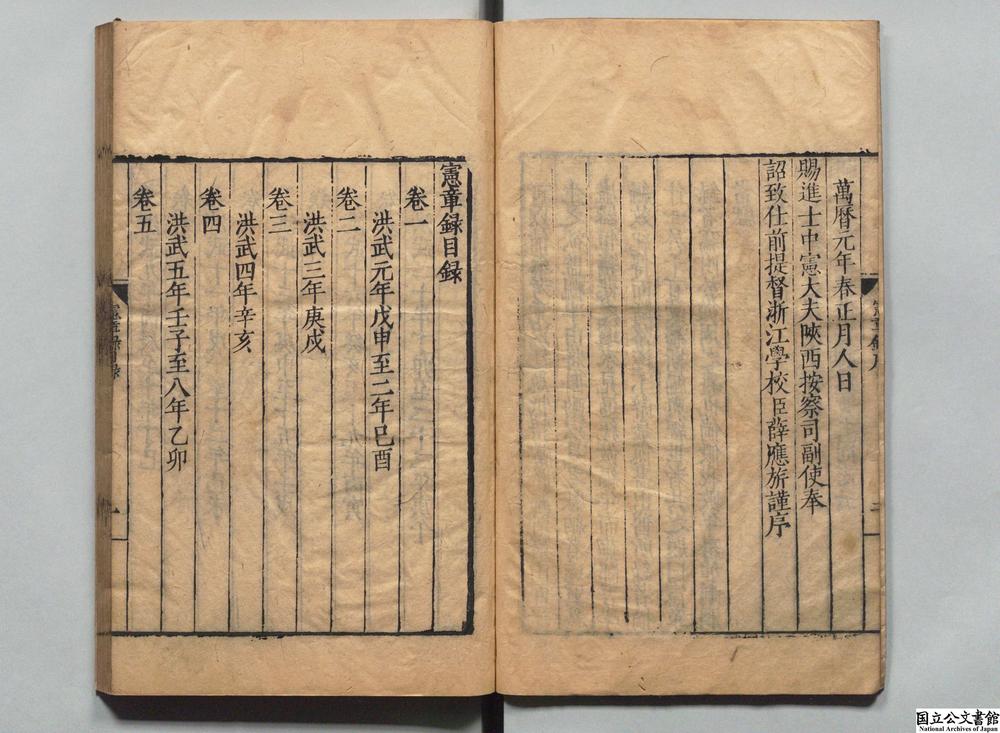 萬曆元年春正月人日
賜進士中憲大夫陝西按察司副使奉
詔致仕前提督浙江學校臣薛應旂謹序
憲章録目録
卷一
洪武元年戊申至二年己酉
卷二
洪武三年庚戌
卷三
洪武四年辛亥
卷四
洪武五年壬子至八年乙卯
卷五
国立公文書館
National Archives of Japan